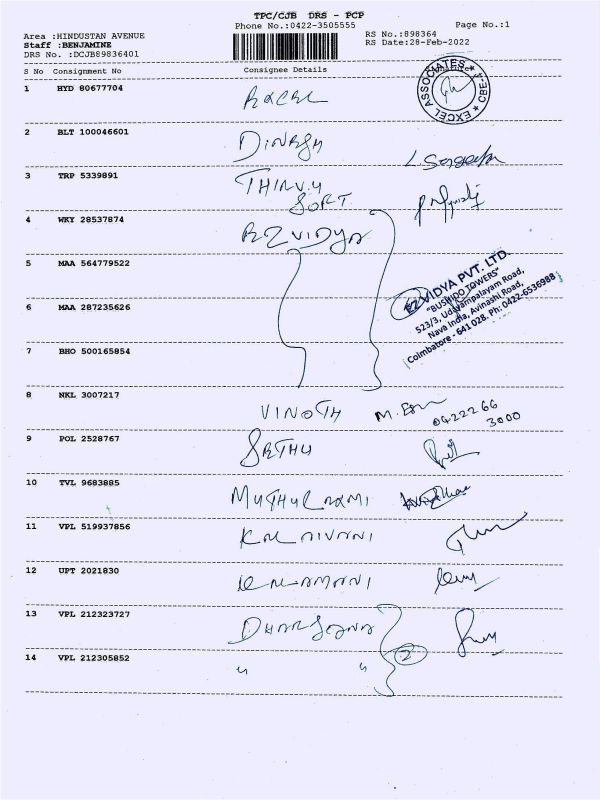 TPC/CJB DRS - PCP
Phone No.:0422-3505555
Page No.:1
Area :HINDUSTAN AVENUE
RS No.:898364
Staff :BENJAMINE
RS Date:28-Feb-2022
DRS No. :DCJB89836401
S No Consignment No Consignee Details
1 HYD 80677704 EXCEL
EXCEL ASSOCIATES ★ CBE-4 ★
2 BLT 100046601 DINESH
3 TRP 5339891 THIRU.U
SORT
4 WKY 28537874 EZVIDYA
5 MAA 564779522
EZ VIDYA PVT. LTD.
"BUSHIDO TOWERS"
523/3, Udayampalayam Road,
Nava India, Avinashi Road,
Coimbatore - 641 028. Ph: 0422-6536988
6 MAA 287235626
7 BHO 500165854
8 NKL 3007217 VINOTH
0422266
3000
9 POL 2528767 SETHU
10 TVL 9683885 MUTHULAXMI
11 VPL 519937856 KALAIVANI
12 UPT 2021830 KALAMANI
13 VPL 212323727 DHARSANA
2
14 VPL 212305852 " "